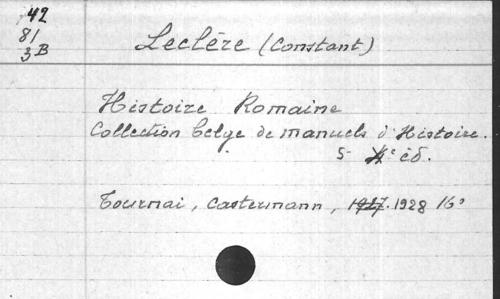 42
81
3B
Leclère (Constant)
Histoire Romaine
Collection belge de manuels d'Histoire.
5 4e éd.
Tournai, Castermann, 1927. 1928 16°